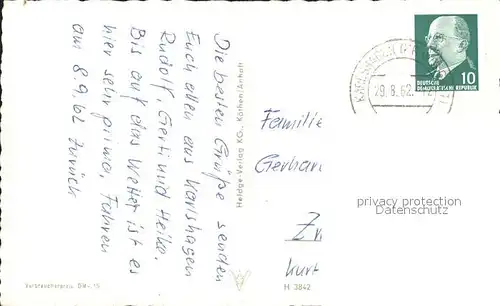 Die besten Grüße senden
Euch allen aus Karlshagen
Rudolf, Gerti und Heike.
Bis auf das Wetter ist es
hier sehr prima. Fahren
am 8.9.62 zurück
Heldge-Verlag KG., Köthen/Anhalt
Familie
Gerhar
kurt
KARLSHAGEN
29.8.62
10
DEUTSCHE
DEMOKRATISCHE REPUBLIK
privacy protection
Datenschutz
Verbraucherpreis DM -,15
H 3842